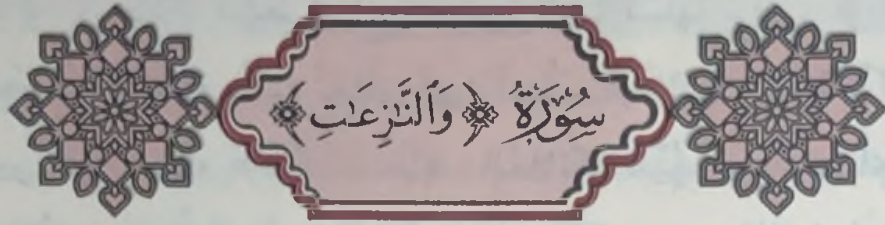 سُورَةُ ﴿وَٱلنَّٰزِعَٰتِ﴾